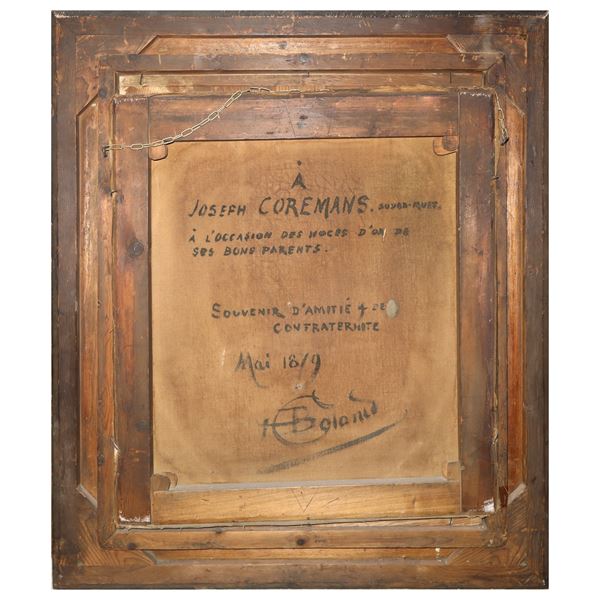 À
JOSEPH COREMANS.
À L'OCCASION DES NOCES D'OR DE
SES BONS PARENTS.
SOUVENIR D'AMITIÉ & DE
CONFRATERNITE
Mai 18/9